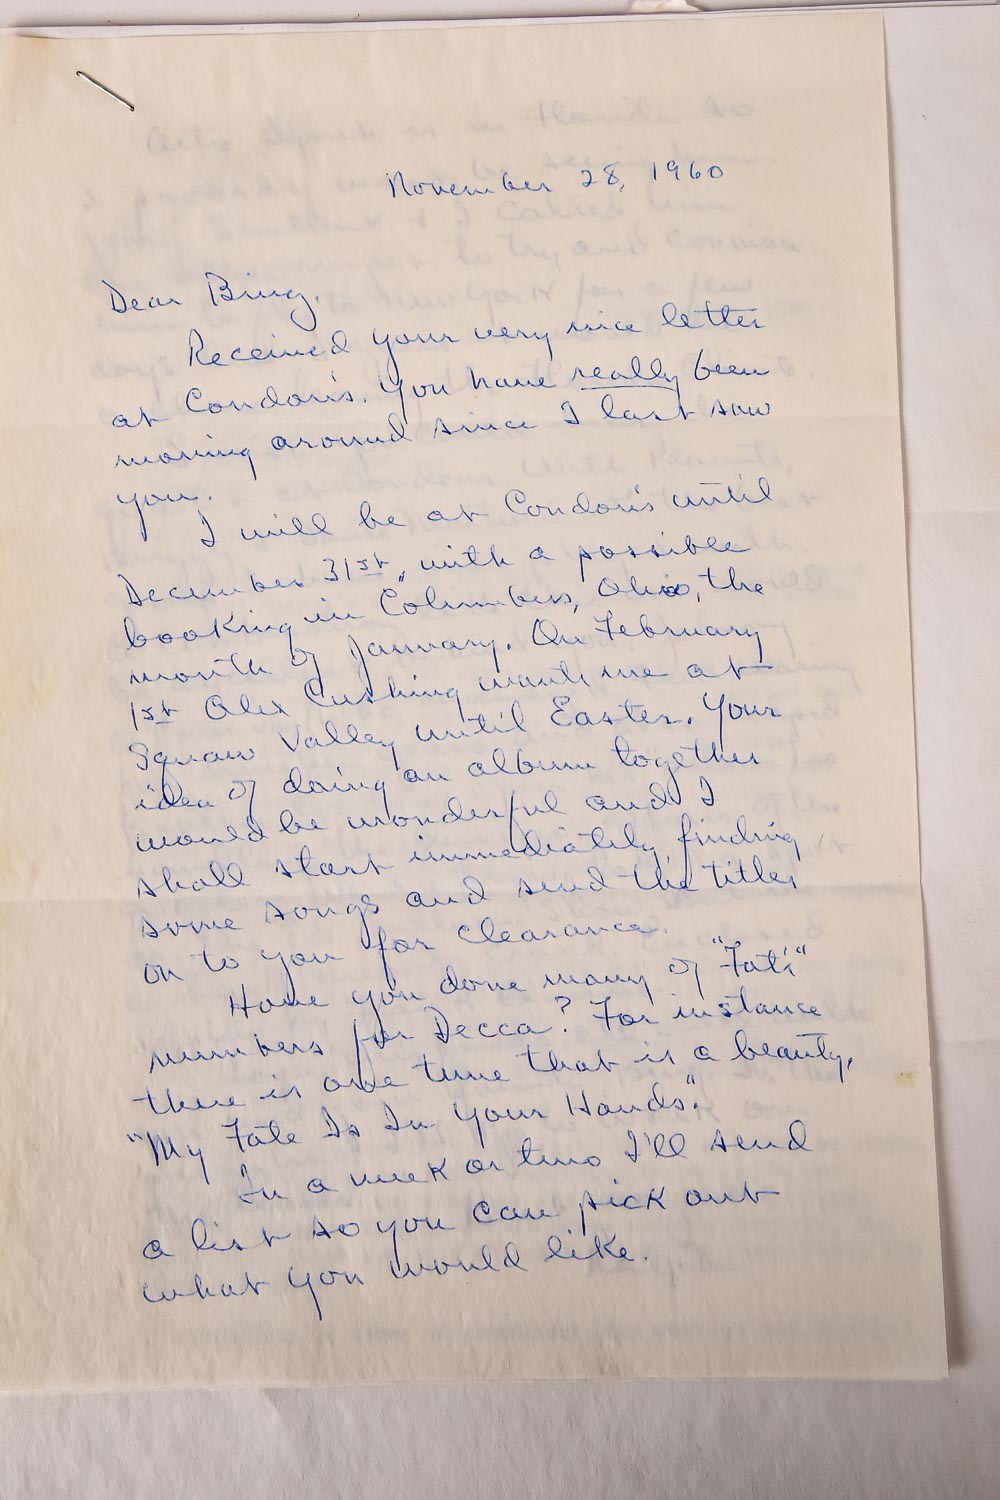 November 28, 1960
Dear Bing,
Received your very nice letter
at Condon's. You have really been
moving around since I last saw
you.
I will be at Condon's until
December 31st, with a possible
booking in Columbus, Ohio, the
month of January. On February
1st Alex Cushing wants me at
Squaw Valley until Easter. Your
idea of doing an album together
would be wonderful and I
shall start immediately finding
some songs and send the titles
on to you for clearance.
Have you done many of "Fat's"
numbers for Decca? For instance
there is one tune that is a beauty,
"My Fate Is In Your Hands."
In a week or two I'll send
a list so you can pick out
what you would like.